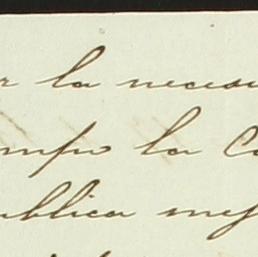 r la necesi
empo la Co
ública mej